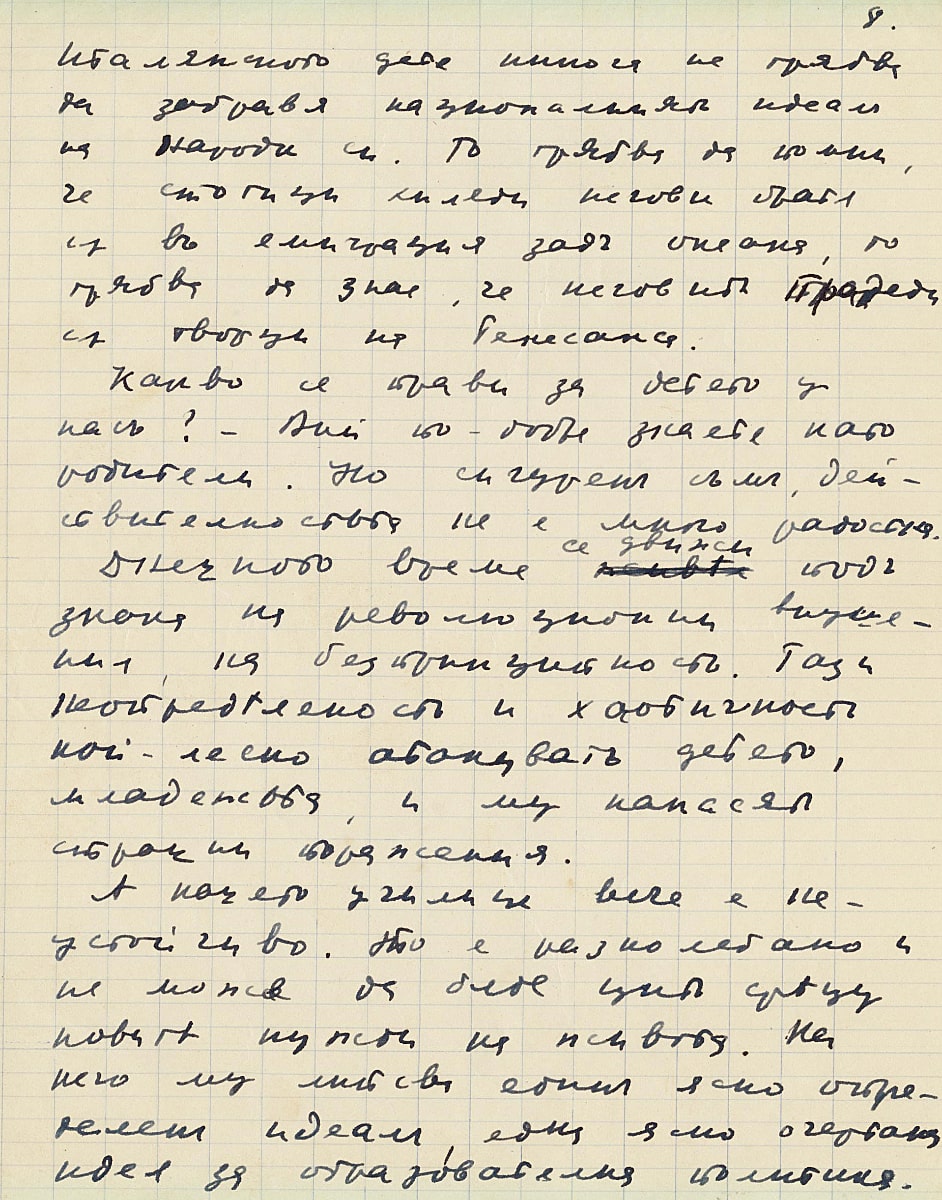 8.
Италянското дете никога не трябва
да забравя националният идеал
на народа си. То трябва да помни,
че стотици хиляди негови братя
са въ емиграция задъ океана, то
трябва да знае, че неговитъ прадеди
са творци на Ренесанса.
Какво се прави за детето у
насъ? – Вий по-добре знаете като
родители. Но сигуренъ съмъ, дей-
ствителностьта не е много радостна.
Днешното време се движи подъ
знака на революционни внуше-
ния, на безпринципность. Тази
неопредѣленость и хаотичность
най-лесно атакуватъ детето,
младежьта, и му нанасятъ
страшни поражения.
А нашето училище вече е не-
устойчиво. То е разколебано и
не може да бѫде щитъ срѣщу
новитѣ нужди на живота. На
него му липсва единъ ясно опре-
деленъ идеалъ, една ясно очертана
идея за образователна политика.